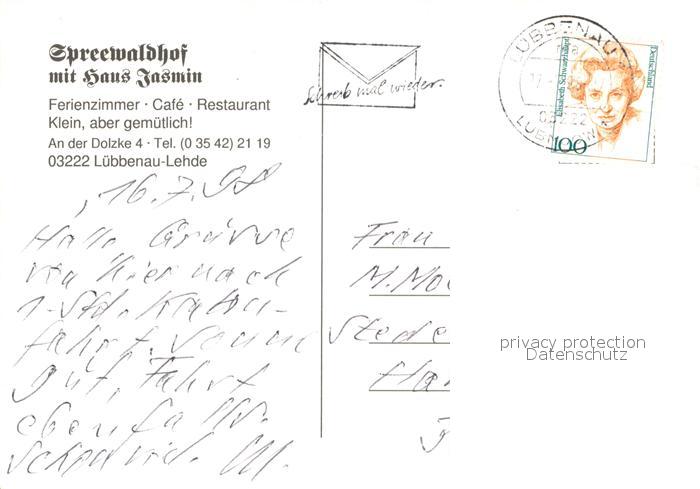 Spreewaldhof
mit Haus Jasmin
Ferienzimmer · Café · Restaurant
Klein, aber gemütlich!
An der Dolzke 4 · Tel. (0 35 42) 21 19
03222 Lübbenau-Lehde
Schreib mal wieder.
LÜBBENAU
03222
LUBNJOW
Elisabeth Schwarzhaupt
Deutschland
100
16.7.98
Hallo Grüsse
von hier nach
1-Std. Kahn-
fahrt.
gut, Fahrt
ebenfalls.
M.
Frau
M. Mo
Stede
Ha
privacy protection
Datenschutz